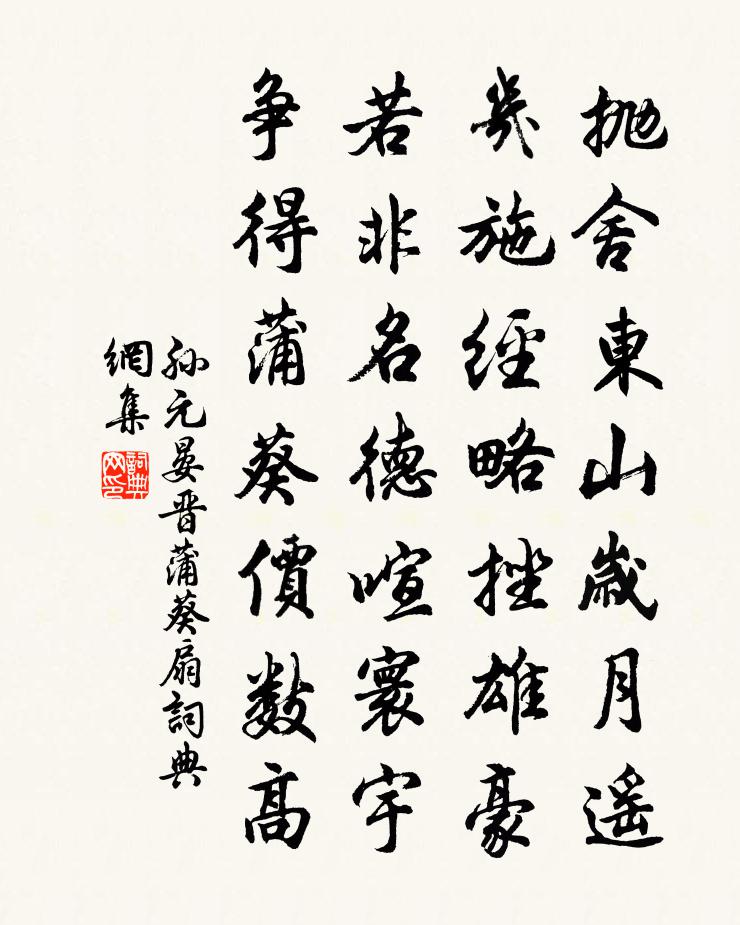 抛舍東山歲月遥
幾施經略挫雄豪
若非名德喧寰宇
争得蒲葵價數高
孙元晏晋蒲葵扇詞典
網集
詞典
网印